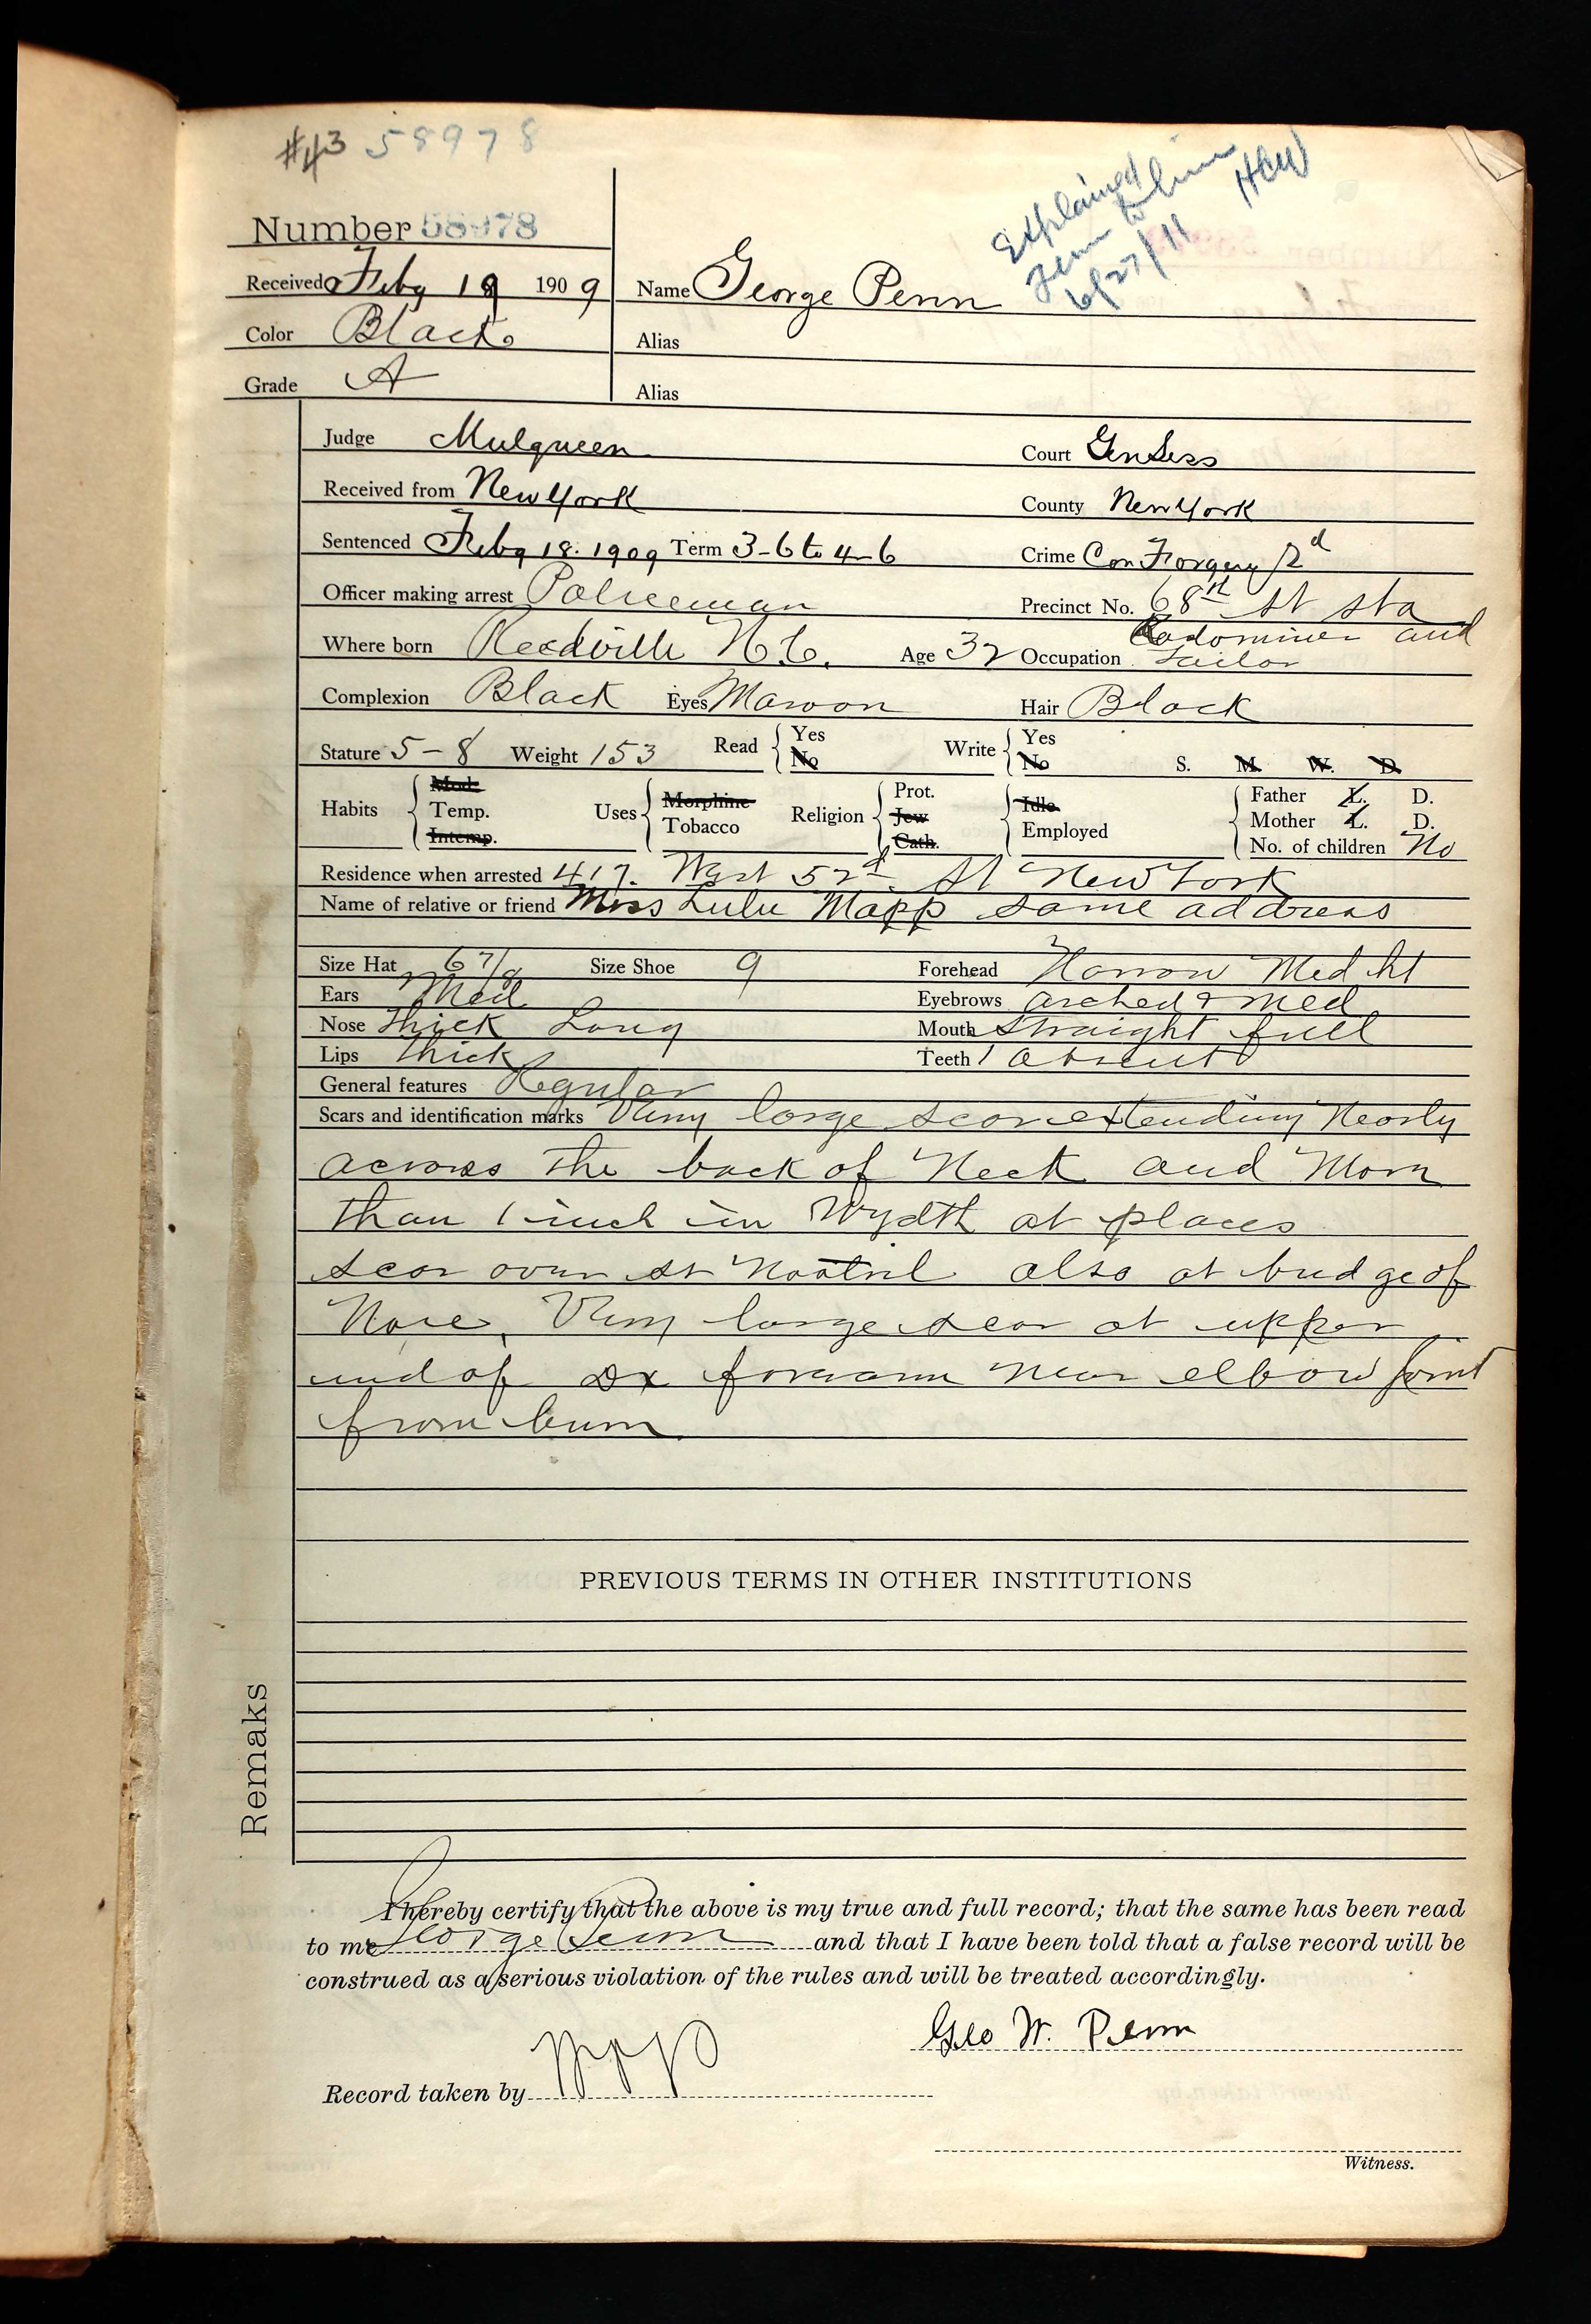 #43 58978
Explained
Term to him
6/27/11 HCW
Number 58978
Received Feby 18 1909 Name George Penn
Color Black Alias
Grade A Alias
Judge Mulqueen Court Gen Sess
Received from New York County New York
Sentenced Feby 18. 1909 Term 3-6 to 4-6 Crime Con Forgery 2d
Officer making arrest Policeman Precinct No. 68th St sta
Where born Reedville N.C. Age 32 Occupation and Tailor
Complexion Black Eyes Maroon Hair Black
Stature 5-8 Weight 153 Read { Yes No Write { Yes No S. M. W. D.
Habits { Mod. Temp. Intemp. Uses { Morphine Tobacco Religion { Prot. Jew Cath. { Idle Employed { Father L. D. Mother L. D. No. of children No
Residence when arrested 417. West 52d. St New York
Name of relative or friend Miss Lulu Mapp same address
Size Hat 6 7/8 Size Shoe 9 Forehead Narrow Med ht
Ears Med Eyebrows arched & Med
Nose thick Long Mouth Straight full
Lips thick Teeth 1 absent
General features Regular
Scars and identification marks Very large scar extending Nearly
across the back of Neck and More
than 1 inch in Wydth at places
scar over Nostril also at bridge of
Nose, Very large scar at upper
end of forearm near elbow joint
from burn
PREVIOUS TERMS IN OTHER INSTITUTIONS
Remaks
I hereby certify that the above is my true and full record; that the same has been read
to me George Penn and that I have been told that a false record will be
construed as a serious violation of the rules and will be treated accordingly.
Geo W. Penn
Record taken by
Witness.